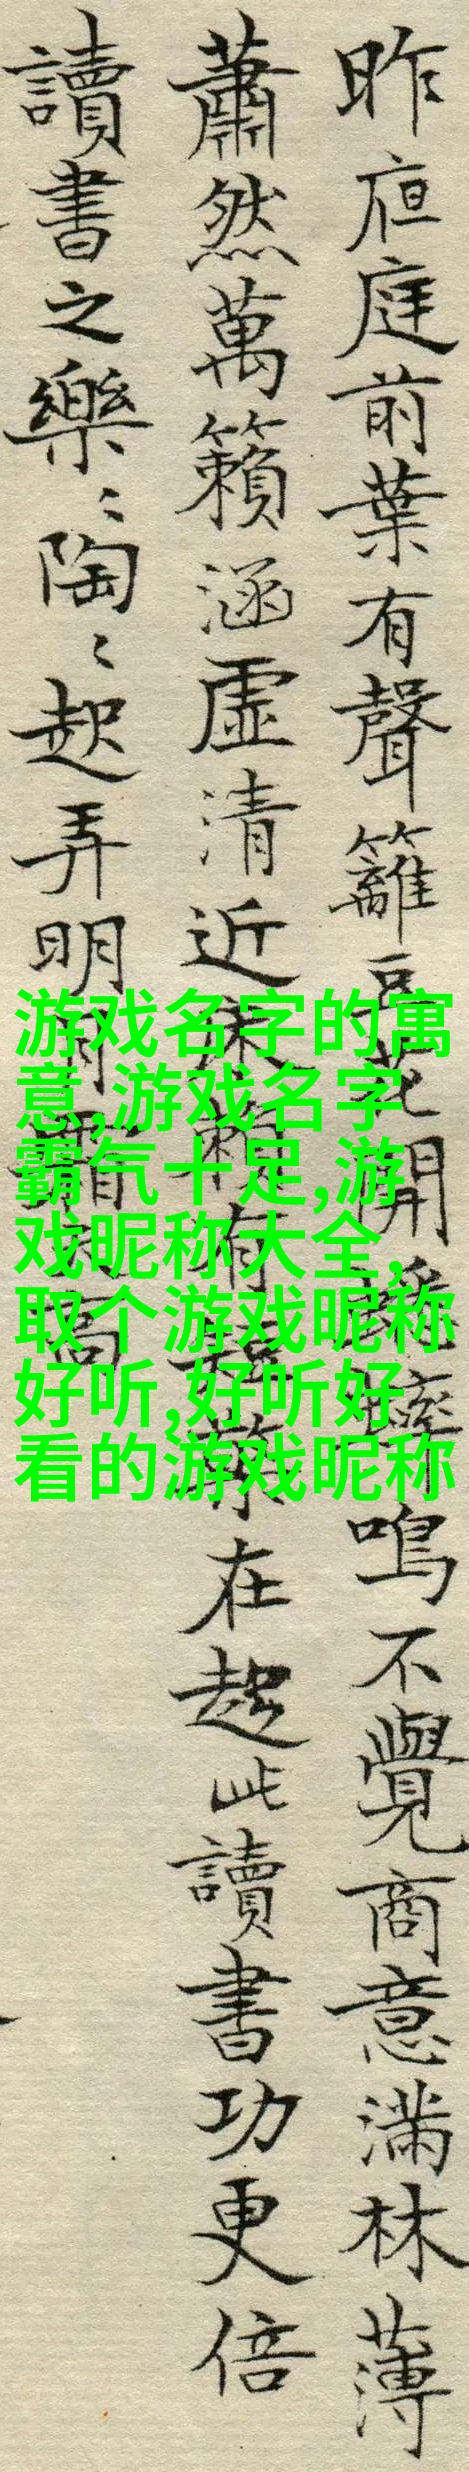 昨亱庭前葉有聲籬豆花開蟋蟀鳴不覺商意滿林薄
蕭然萬籟涵虛清近床賴有短檠在起此讀書功更倍
讀書之樂〻陶〻起弄明月霜天高
游戏名字的寓
意,游戏名字
霸气十足,游
戏昵称大全,
取个游戏昵称
好听,好听好
看的游戏昵称